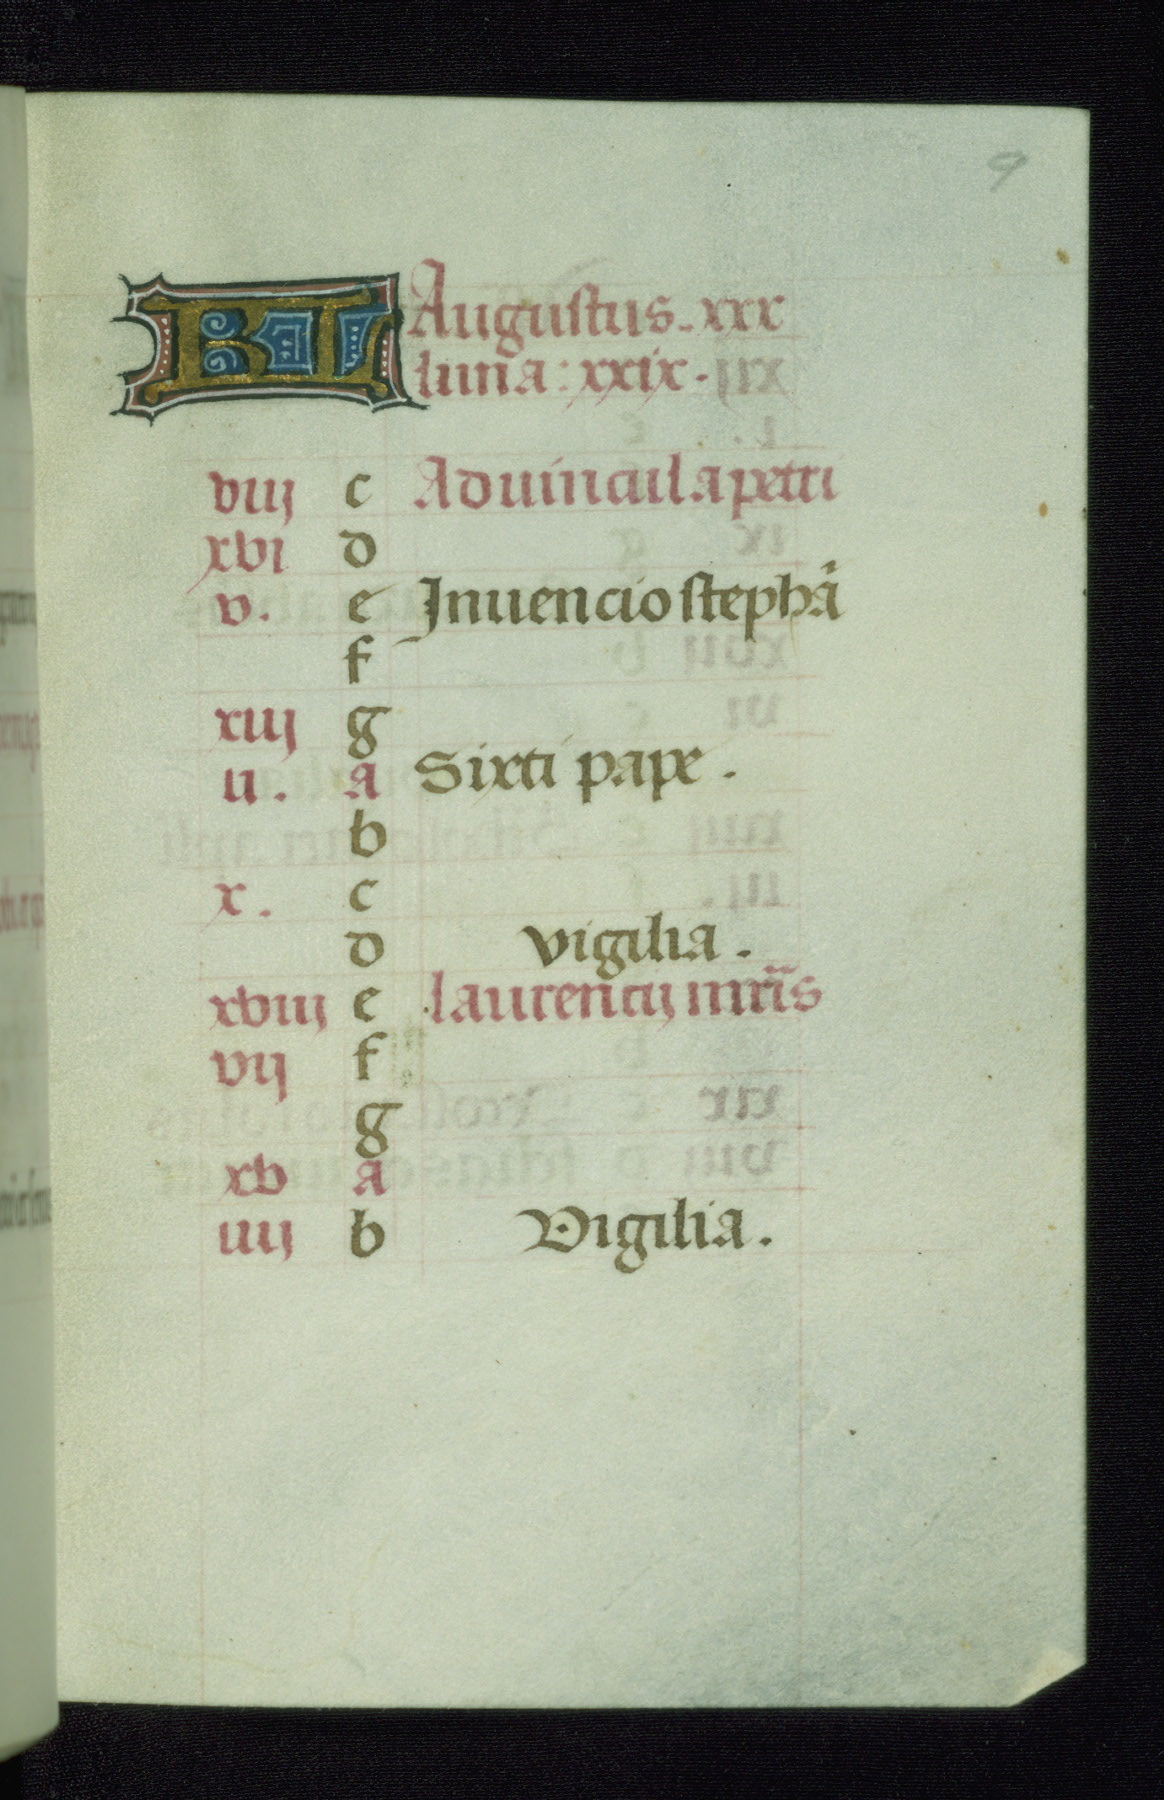 9
KL Augustus. xxx
luna: xxix.
viij c Ad uincula petri
xvi d
v. e Inuencio stephā
f
xiij g
ii. a Sixti pape.
b
x. c
d vigilia.
xviij e laurencij mr̄is
vij f
g
xv a
iiij b Vigilia.